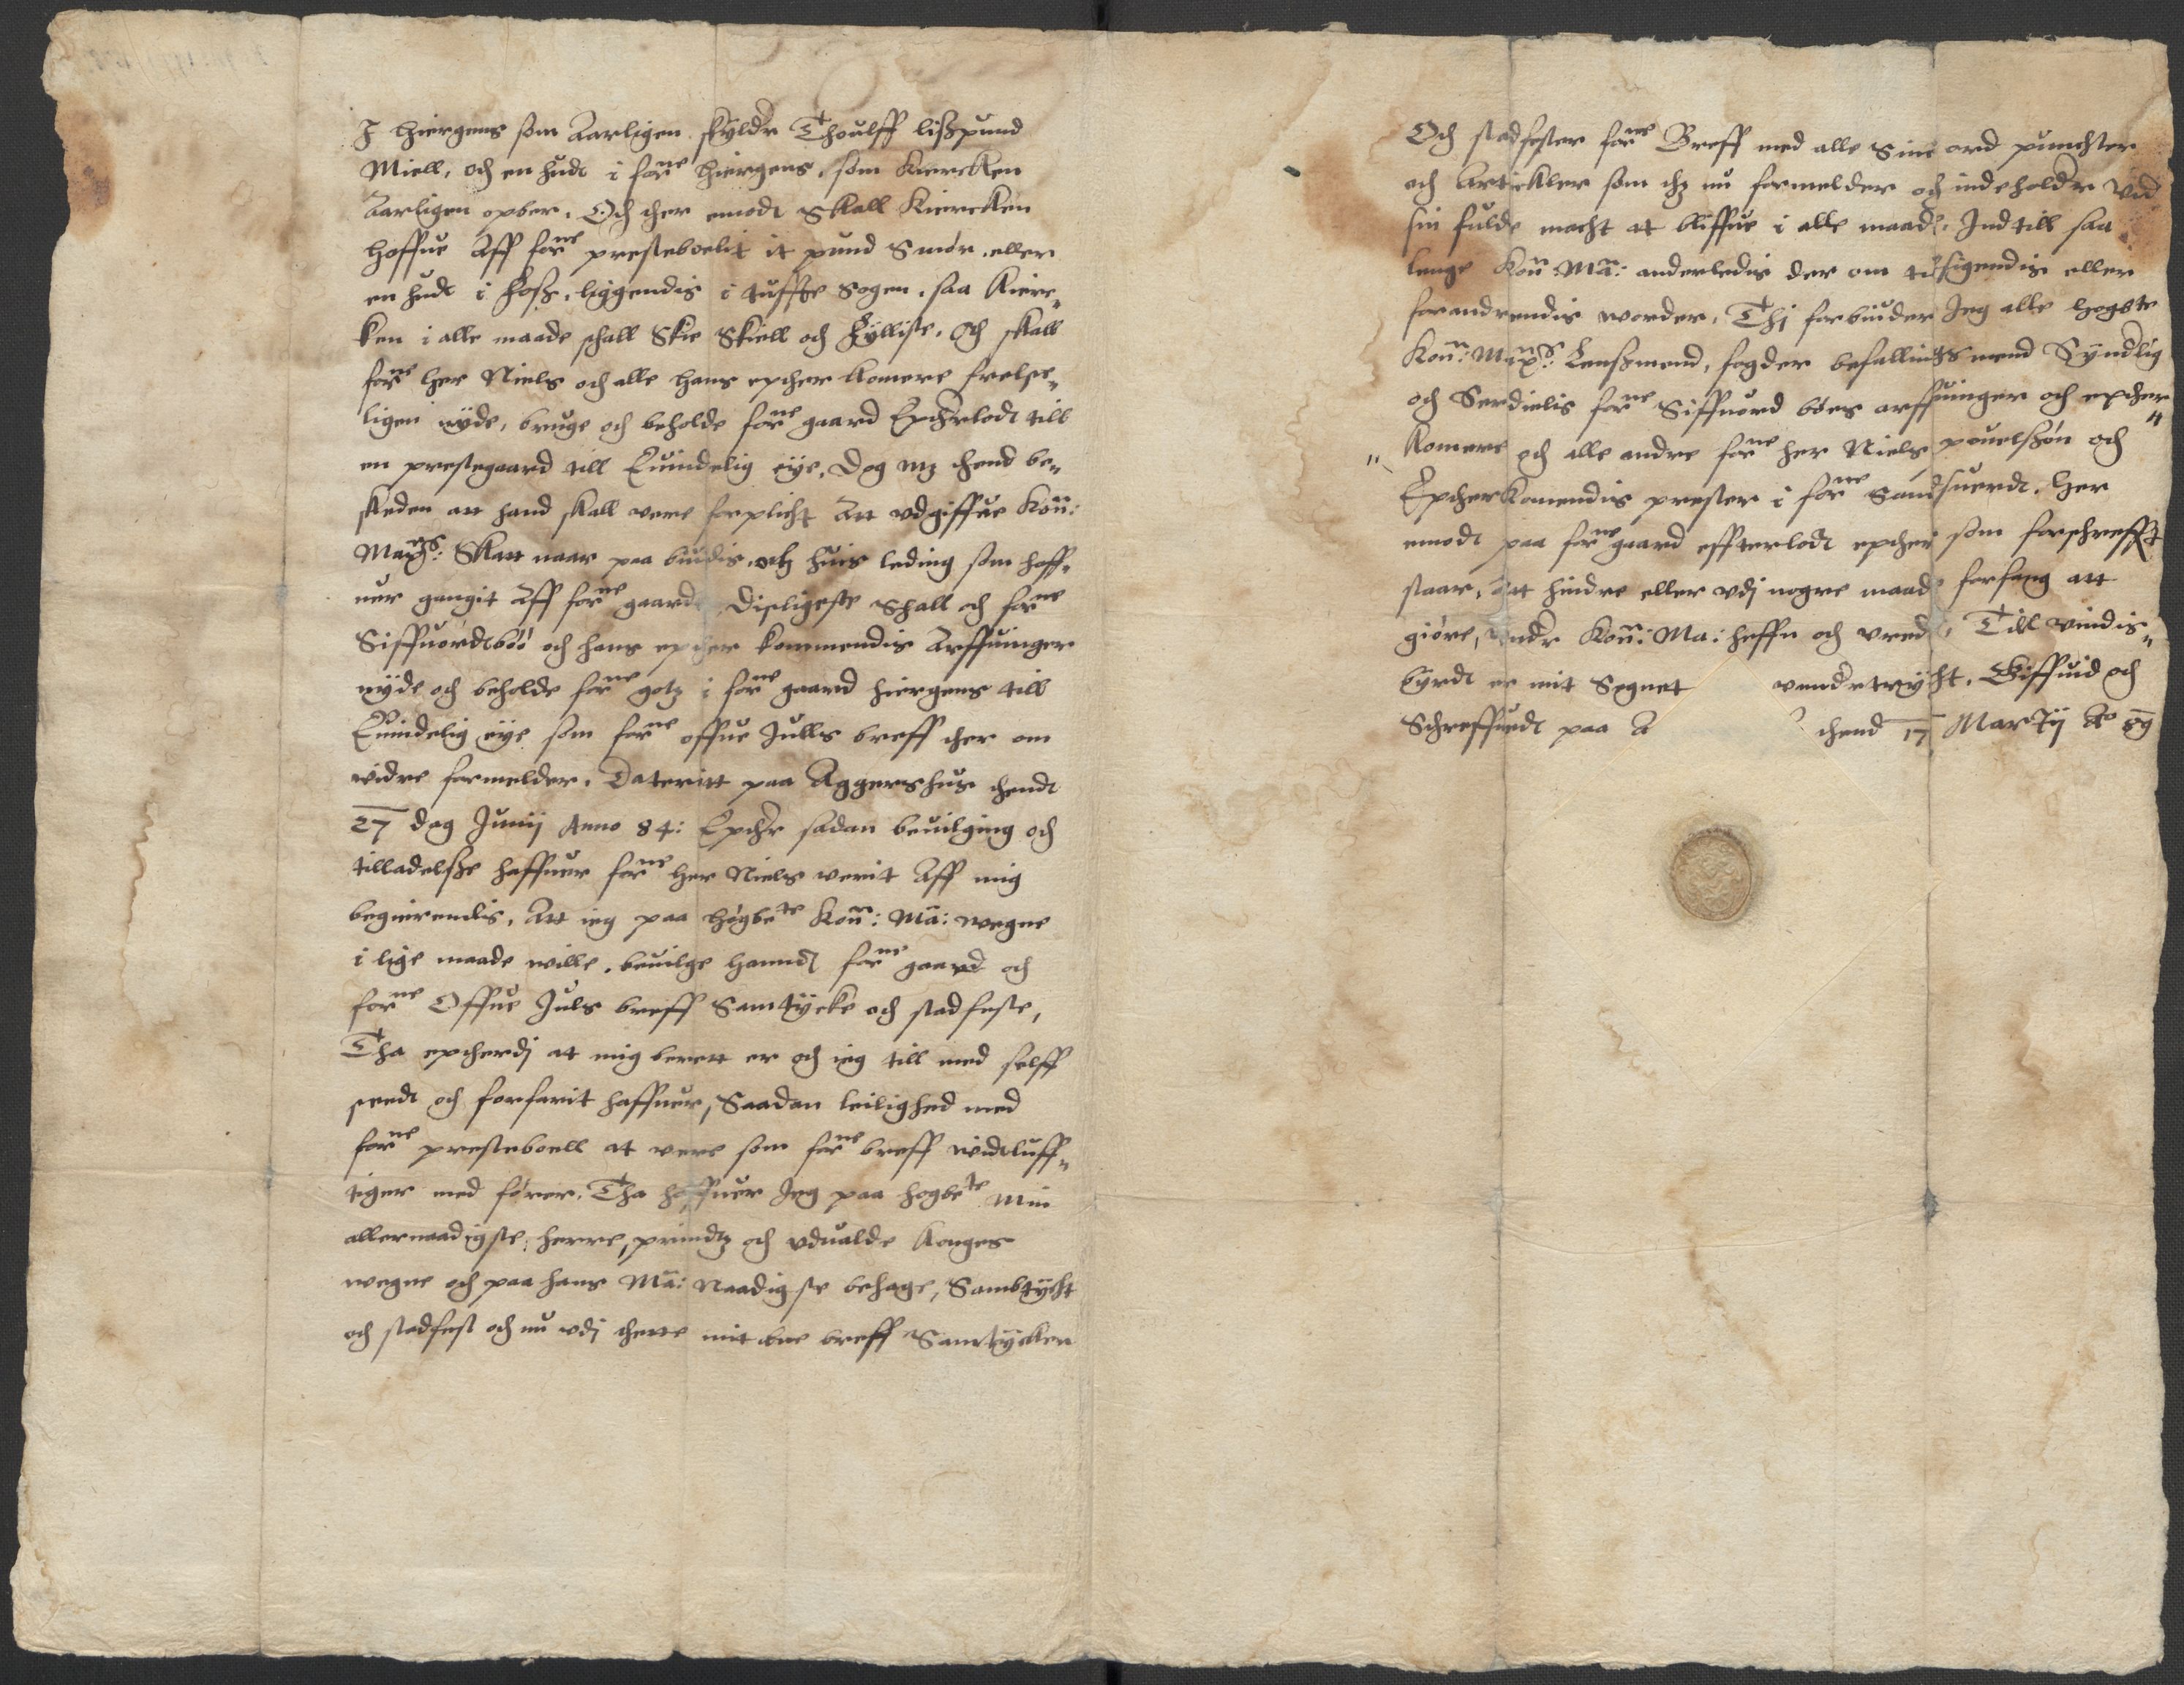 I hiergens som Aarligen skyldr Thoulff lißpund
Miell, och en hudt i forne hiergens, som Kiercken
Aarligen opber, Och ther emodt Skall Kiercken
hoffue Aff forne presteboelit it pund Smør, eller
en hudt i Foß, liggendis i tuffte Sogen, saa Kierc„
ken i alle maade schall Skie Skiell och Fylliste, Och skall
forne her Niels och alle hans epther komere frelse„
ligen nyde, bruge och beholde forne gaard Epthrlodt till
en prestegaard till Euindelig eye, Dog mz thend be„
skeden att hand skall vere forplicht Att vdgiffue Kon:
Matz: Skatt naar paa biudis, och huis leding som haff„
uer gangit Aff forne gaard, Disligeste Schall och forne
Siffuordt boó och hans epther kommendis Arffuinger
nyde och beholde forne gotz i forne gaard hiergens till
Euindelig eye som forne offue Juls breff ther om
vidre formelder, Dateritt paa Aggershus thendt
27 dag Junij Anno 84: Epthr sadan beuilging och
tilladelße haffuer forne her Niels verit Aff mig
begierendis, Att ieg paa høgbete Kon: Ma: wegne
i lige maade wille, beuilge hannd forne gaard och
forne Offue Juls breff Samtycke och stadfeste,
Tha eptherdj at mig berett er och ieg till med selff
seedt och forfarit haffuer, Saadan leilighed med
forne presteboell at vere som forne breff vidtluff„
tiger med fører, Tha haffuer Jeg paa hogbete Min
allernaadigste herre, prindtz och vdualde Konges
wegne och paa hans Ma: Naadigste behage, Sambtycht
och stadfest och nu vdj thette mit obne breff Samtycker
Och stadfester forne Breff med alle Sine ord puncther
och Artickler som thz nu formelder och indeholdr ved
sin fulde macht at bliffue i alle maade, Ind till saa
lenge Kon: Ma: anderledis der om tilsigendis eller
forandrendis worder, Thj forbiuder Jeg alle hogbte
Kon: Matz: Lenßmend, fogder befallings mend Syndlig
och Serdielis forne Siffuord bóes arffuinger och epther„
„komere och alle andre forne her Niels pouelßøn och
Eptherkomendis prester i forne Sandsuerdt, her
emodt paa forne gaard effterlodt epther som forschrefft
staar, Att hindre eller vdj nogre maade forfang att
giøre, Vndr Kon: Ma: heffn och vrede, Till vindis„
byrdt er mit Segnet vendrtrycht, Giffuid och
Schreffuedt paa A thend 17 Martij Ao 89